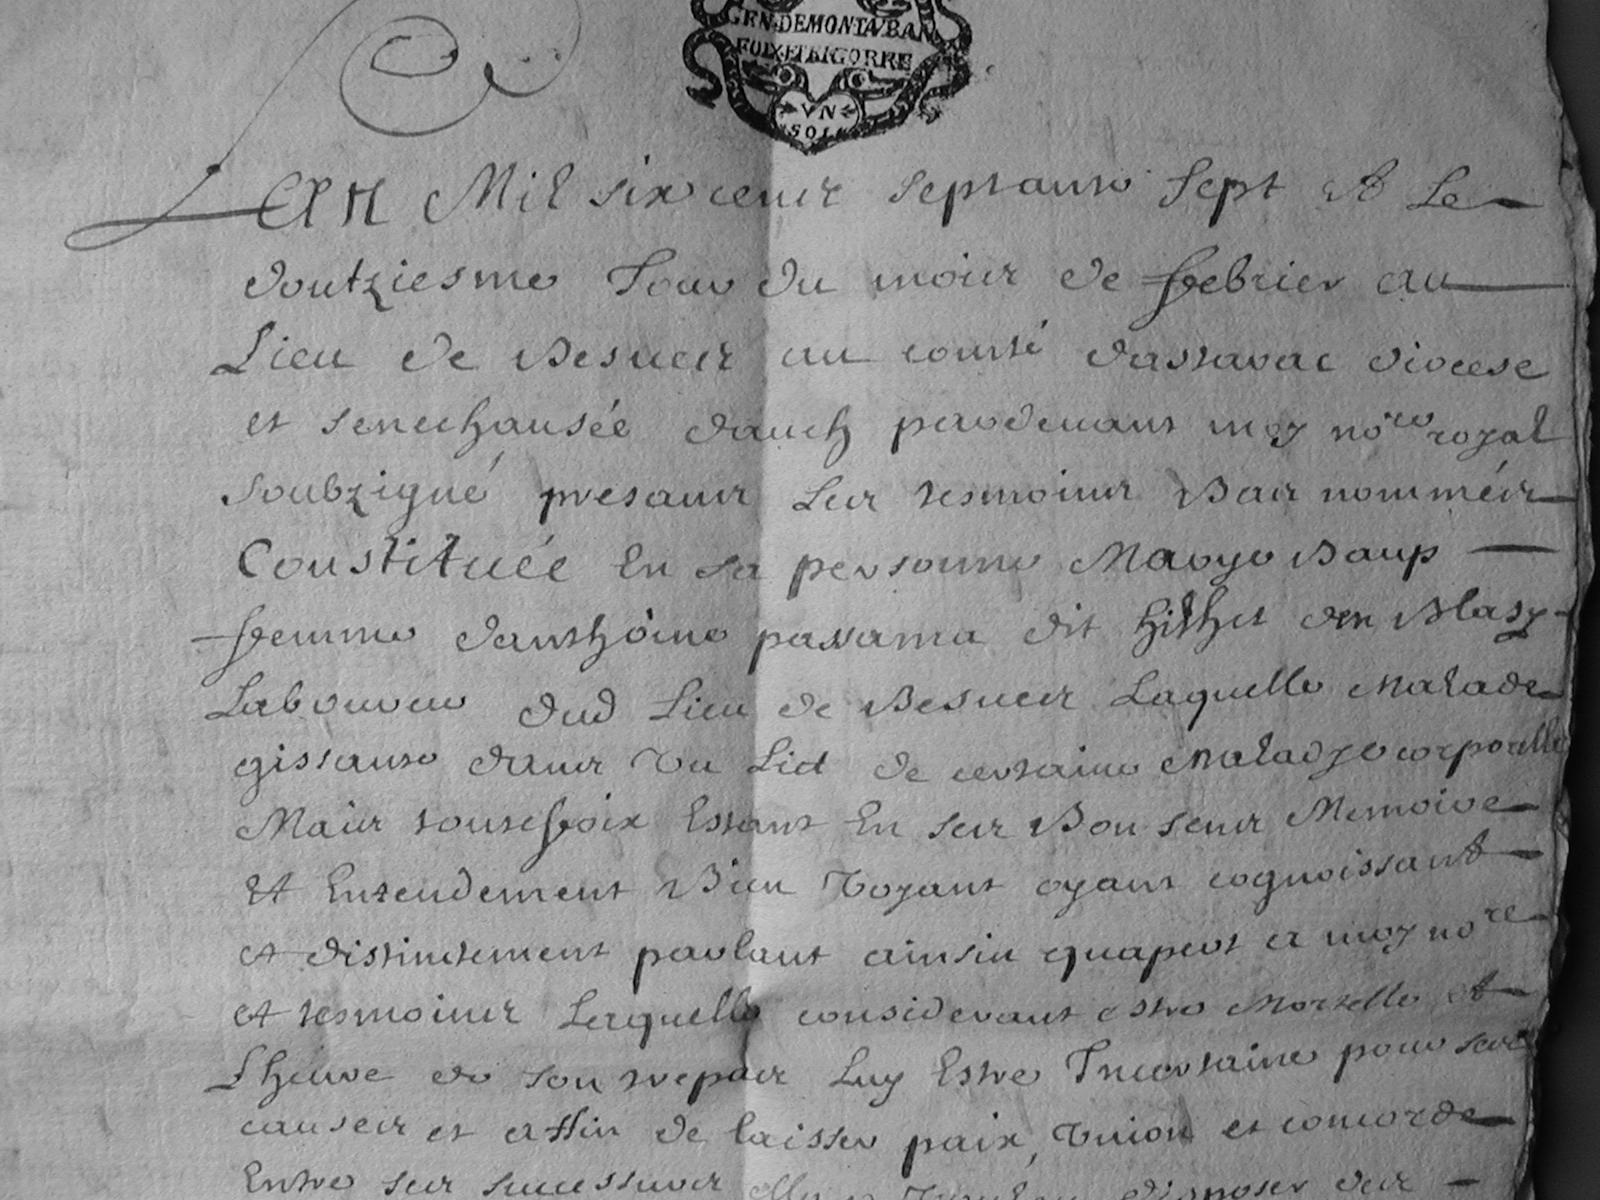 GEN.DEMONTAVBAN
FOIX.ET.BIGORRE
VN
SOL
L'An Mil six cens septante sept et Le
doutziesme Jour du mois de febrier au
Lieu de Besues au comté dastarac diocese
et senechausée dauch pardevant moy no.re royal
soubzigné presans Les tesmoins Bas nommés
Constituée En sa personne Marye Baup
femme danthoine passama dit hilhet den Blasy
Laboureur dud Lieu de Besues Laquelle Malade
gissante dans Un Lict de certaine Maladye corporelle
Mais toutesfoix Estant En ses Bon sens Memoire
et Entendement Bien Voyant oyant cognoissant
et distintement parlant ainsin quapert a moy no.re
et tesmoins Laquelle considerant estre Mortelle et
Lheure de son trepas Luy Estre Incertaine pour ses
causes et affin de laisser paix, Union et concorde
Entre ses successurs disposer des